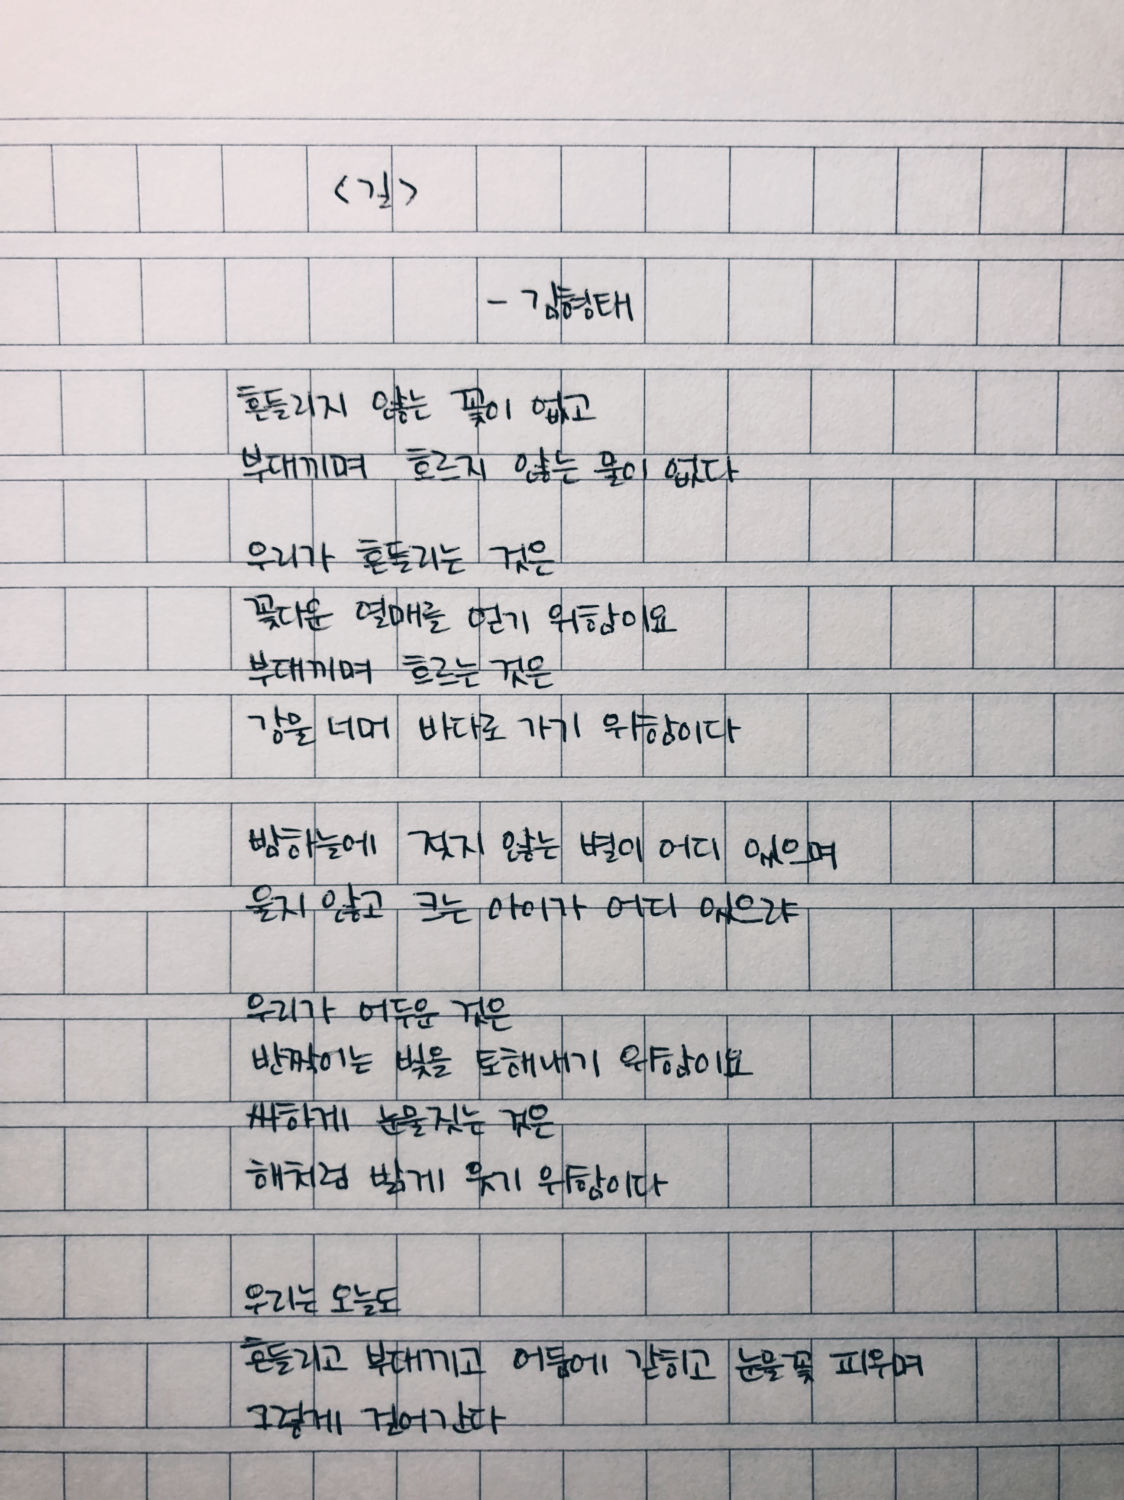 <길>
- 김형태
흔들리지 않는 꽃이 없고
부대끼며 흐르지 않는 물이 없다
우리가 흔들리는 것은
꽃다운 열매를 얻기 위함이요
부대끼며 흐르는 것은
강을 너머 바다로 가기 위함이다
밤하늘에 젖지 않는 별이 어디 있으며
울지 않고 크는 아이가 어디 있으랴
우리가 어두운 것은
반짝이는 빛을 토해내기 위함이요
싸하게 눈물짓는 것은
해처럼 밝게 웃기 위함이다
우리는 오늘도
흔들리고 부대끼고 어둠에 갇히고 눈물꽃 피우며
그렇게 걸어간다